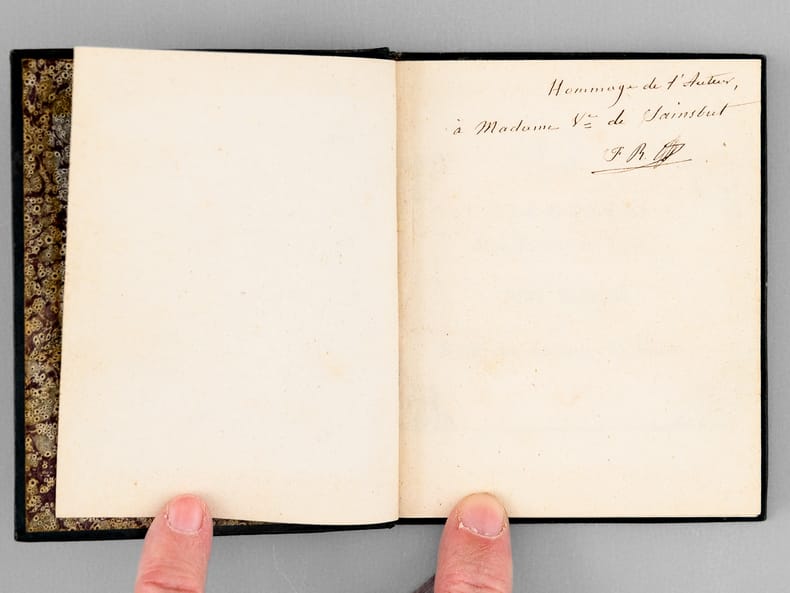 Hommage de l'Auteur,
à Madame Vve de Sainsbut
F R.